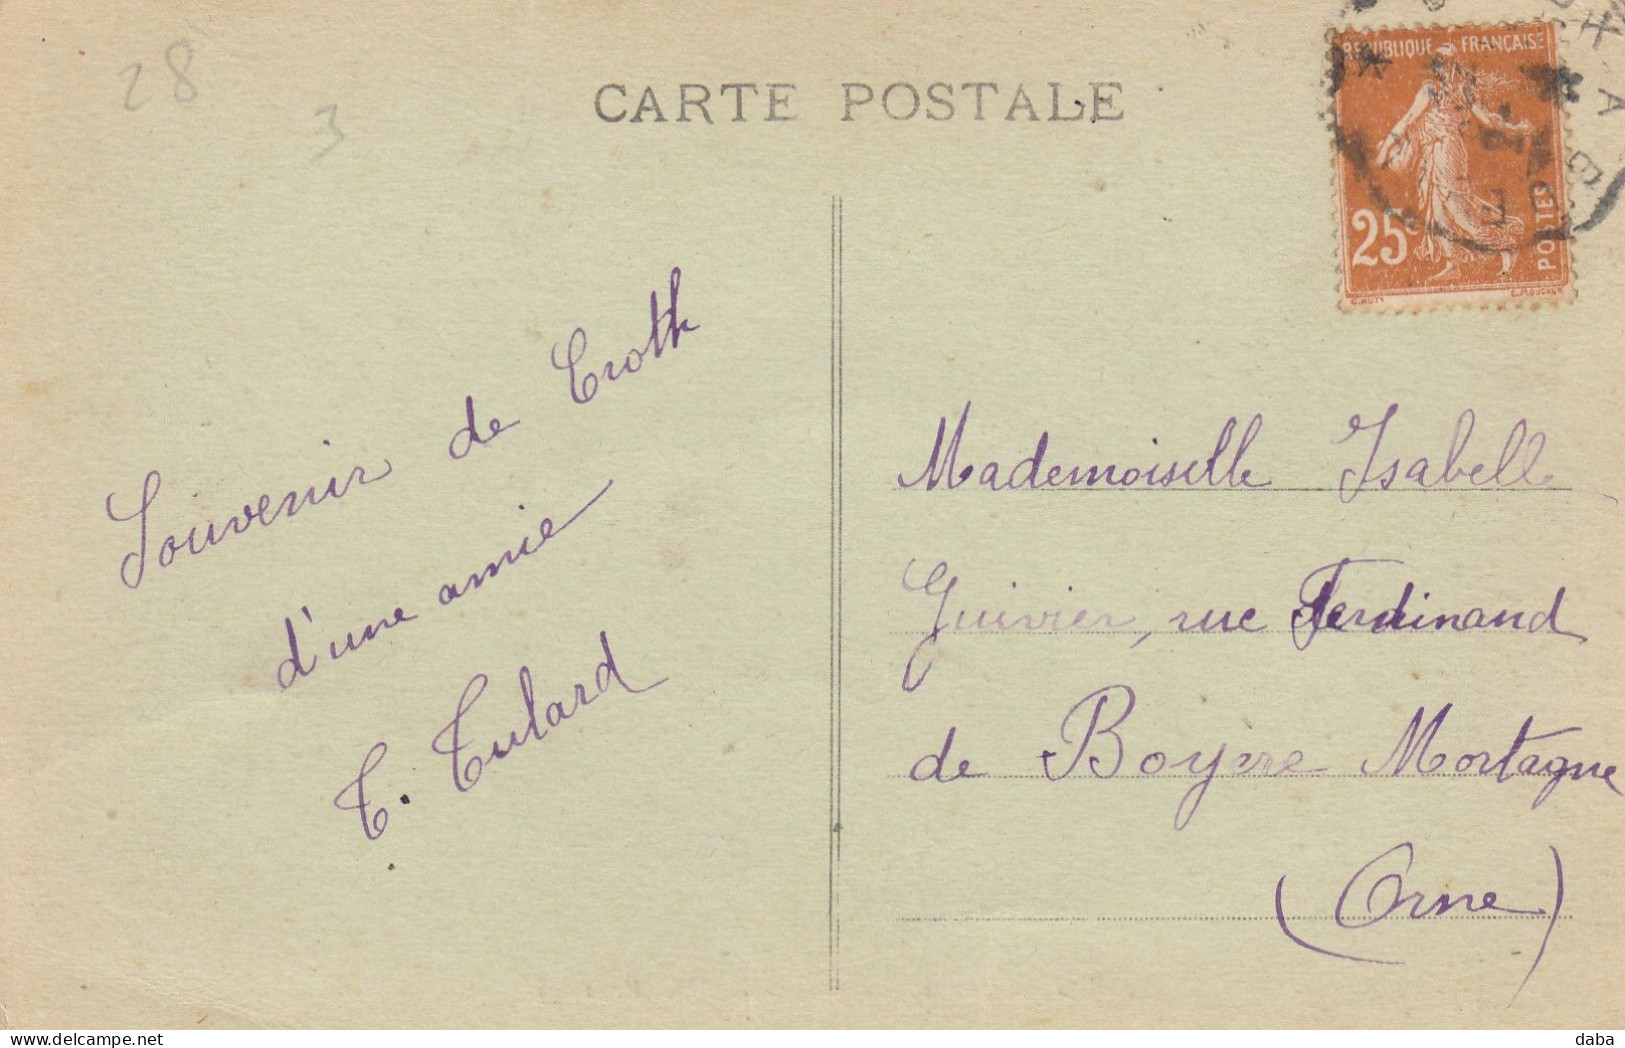 28
3
CARTE POSTALE
REPUBLIQUE FRANÇAISE
25c
POSTES
Souvenir de Croth
d'une amie
T. Tulard
Mademoiselle Isabelle
Guivier, rue Ferdinand
de Boyère Mortagne
(Orne)
delcampe.net
daba